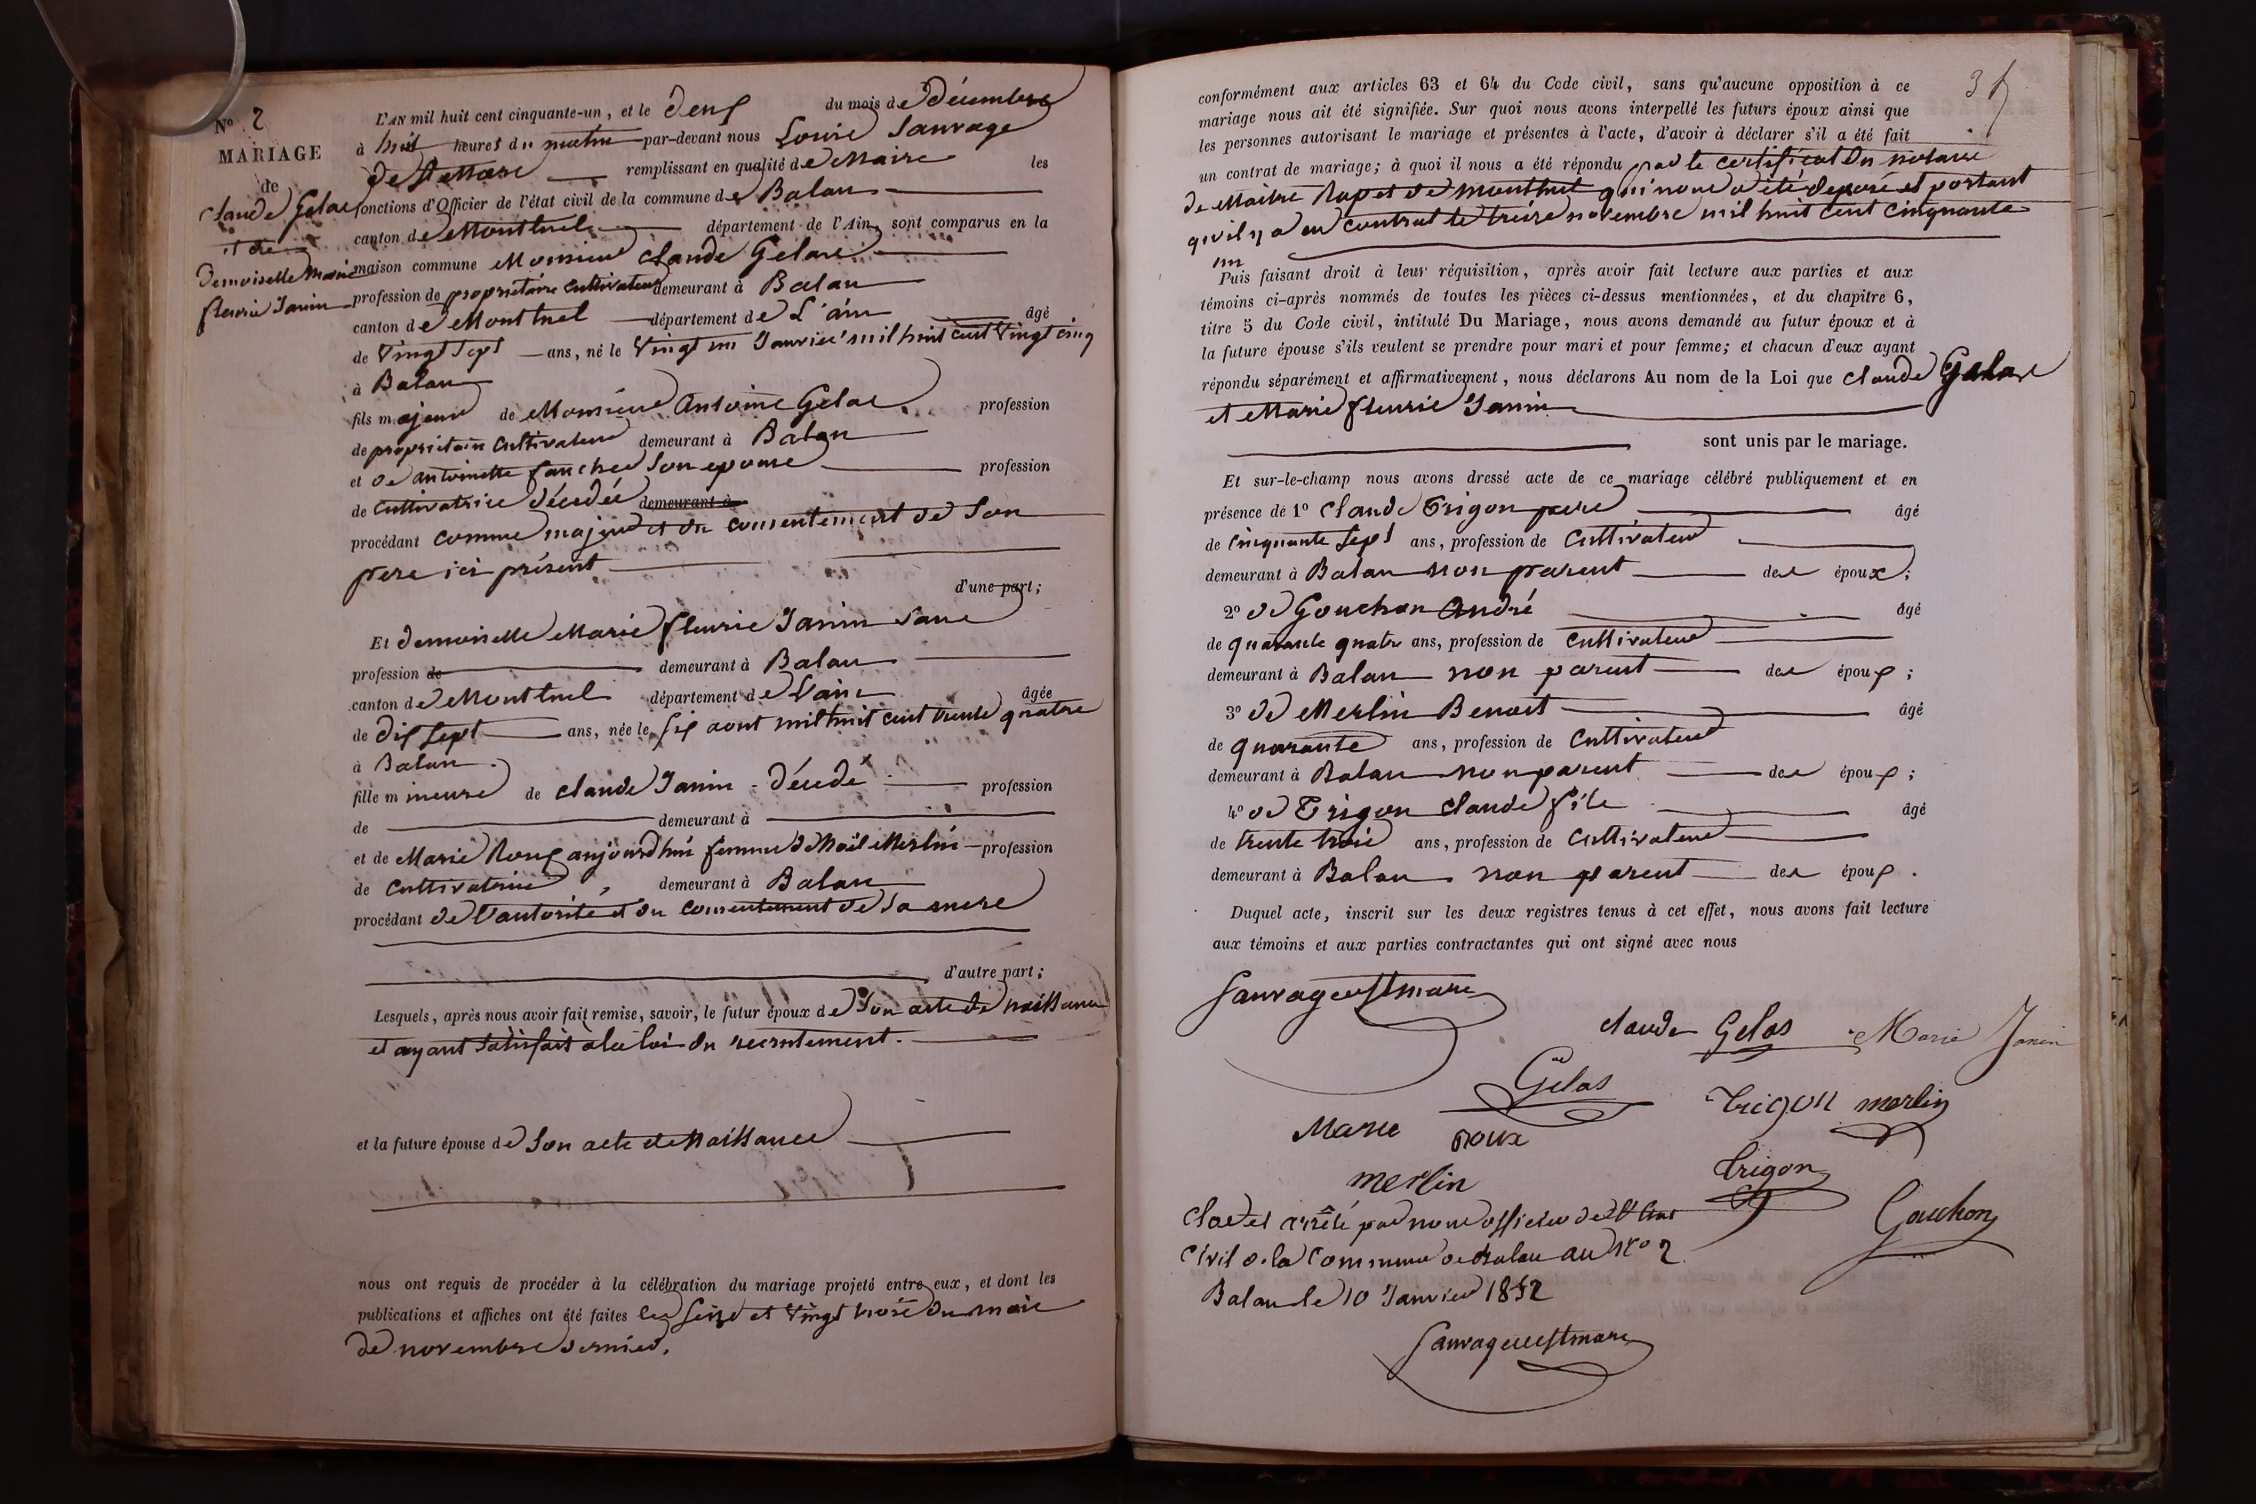 N° 2
MARIAGE
de
Claude Gelas
et de
Demoiselle Marie
fleurie Janin
L'AN mil huit cent cinquante-un, et le deux du mois de Décembre
à huit heures du matin par-devant nous Louis Sauvage
remplissant en qualité de Maire les
fonctions d'Officier de l'état civil de la commune de Balan
canton de Montluel département de l'Ain, sont comparus en la
maison commune Monsieur Claude Gelas
profession de propriétaire cultivateur demeurant à Balan
canton de Montluel département de L'ain âgé
de Vingt sept ans, né le Vingt un Janvier mil huit cent Vingt cinq
à Balan
fils majeur de Monsieur Antoine Gelas profession
de propriétaire cultivateur demeurant à Balan
et de antoinette fanches son epouse profession
de cultivatrice décédée demeurant à
procédant comme majeur et du consentement de son
pere ici présent
d'une part;
Et demoiselle Marie fleurie Janin sans
profession de demeurant à Balan
canton de Montluel département de l'ain âgée
de dix sept ans, née le six aout mil huit cent trente quatre
à Balan
fille mineure de claude Janin décédé profession
de demeurant à
et de Marie Roux aujourdhui femme de Noël Merlin profession
de cultivatrice demeurant à Balan
procédant de l'autorité et du consentement de sa mere
d'autre part;
Lesquels, après nous avoir fait remise, savoir, le futur époux de son acte de naissance
et ayant satisfait à la loi du recrutement.
et la future épouse de son acte de Naissance
nous ont requis de procéder à la célébration du mariage projeté entre eux, et dont les
publications et affiches ont été faites les seize et vingt trois du mois
de novembre dernier.
35
conformément aux articles 63 et 64 du Code civil, sans qu'aucune opposition à ce
mariage nous ait été signifiée. Sur quoi nous avons interpellé les futurs époux ainsi que
les personnes autorisant le mariage et présentes à l'acte, d'avoir à déclarer s'il a été fait
un contrat de mariage; à quoi il nous a été répondu par le certificat du notaire
de Maitre Rapet de Montluel qui nous a été deposé et portant
qu'il y a eu contrat le treize novembre mil huit cent cinquante
un
Puis faisant droit à leur réquisition, après avoir fait lecture aux parties et aux
témoins ci-après nommés de toutes les pièces ci-dessus mentionnées, et du chapitre 6,
titre 5 du Code civil, intitulé Du Mariage, nous avons demandé au futur époux et à
la future épouse s'ils veulent se prendre pour mari et pour femme; et chacun d'eux ayant
répondu séparément et affirmativement, nous déclarons Au nom de la Loi que Claude Gelas
et Marie fleurie Janin
sont unis par le mariage.
Et sur-le-champ nous avons dressé acte de ce mariage célébré publiquement et en
présence de 1° Claude Trigon pere âgé
de cinquante sept ans, profession de cultivateur
demeurant à Balan non parent des époux;
2° de Gouchon André âgé
de quarante quatre ans, profession de cultivateur
demeurant à Balan non parent des époux;
3° de Merlin Benoit âgé
de quarante ans, profession de cultivateur
demeurant à Balan non parent des époux;
4° de Trigon Claude fils âgé
de trente trois ans, profession de cultivateur
demeurant à Balan non parent des époux.
Duquel acte, inscrit sur les deux registres tenus à cet effet, nous avons fait lecture
aux témoins et aux parties contractantes qui ont signé avec nous
claude Gelas Marie Janin
Gelas
Trigon merlin
Marie roux
Trigon
merlin
Gouchon
Clos et arrêté par nous officier de l'état
Civil de la Commune de Balan au N° 2
Balan le 10 Janvier 1852